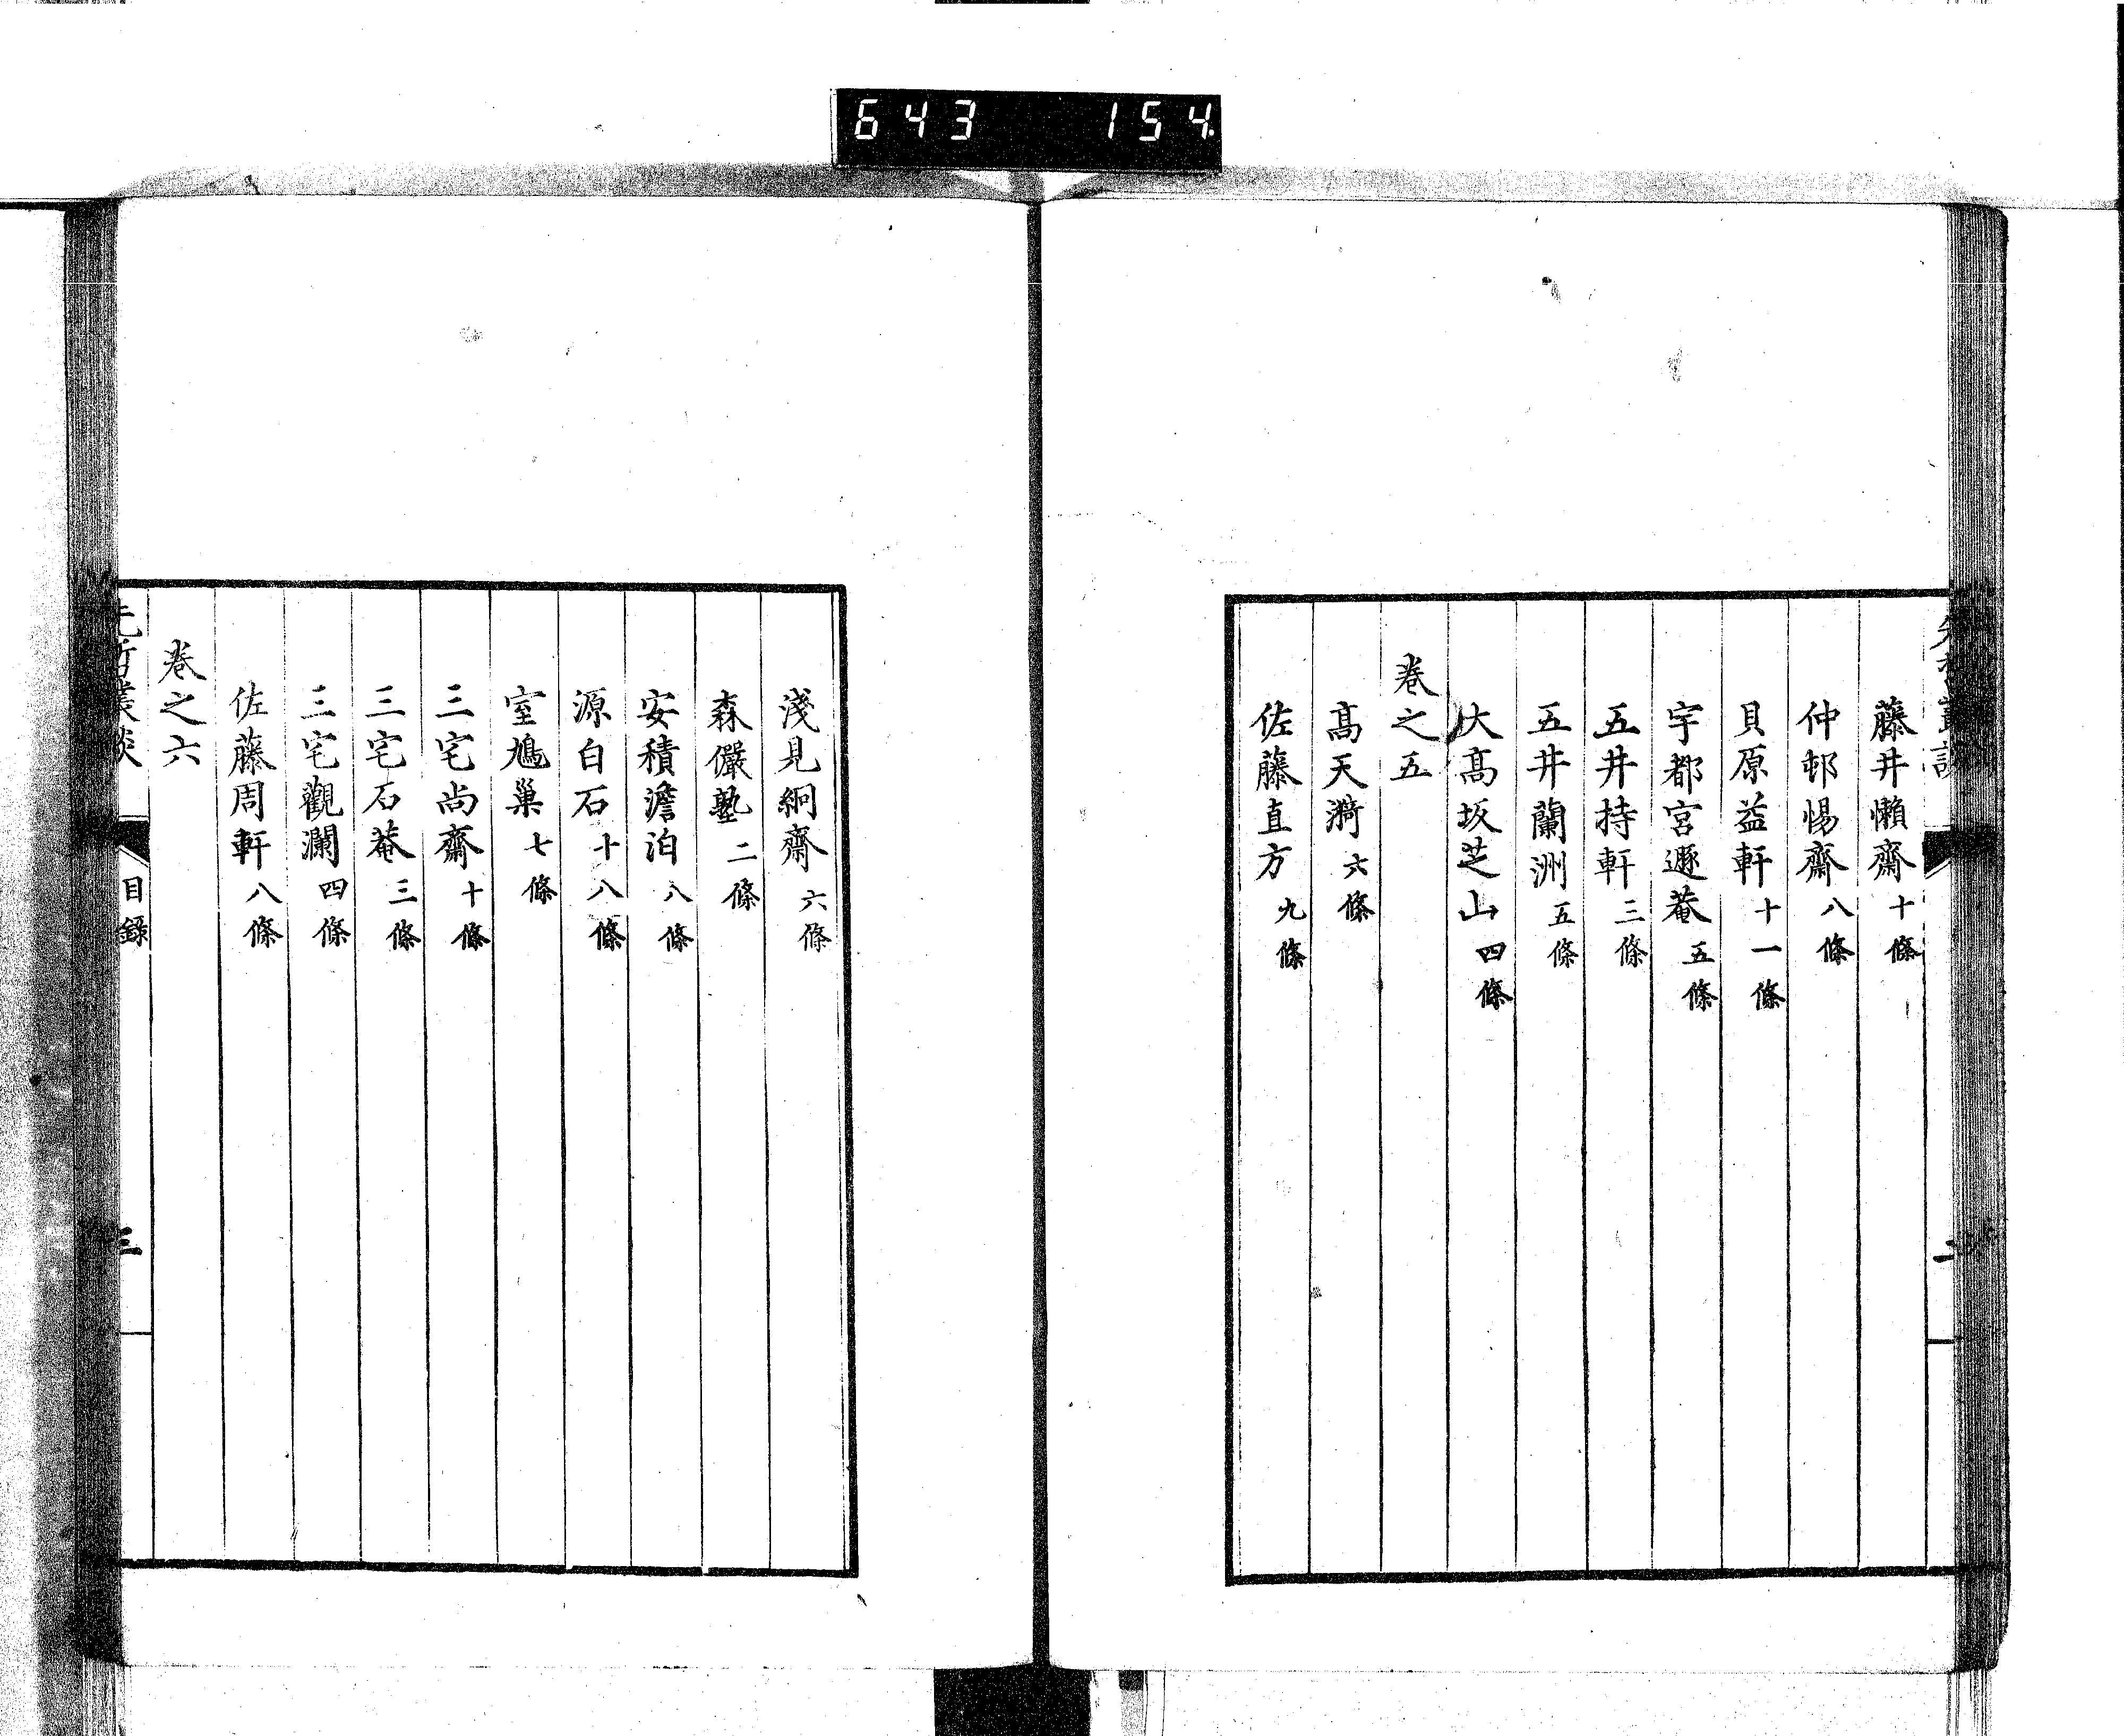 643 154
藤井懶齋十條
仲邨惕齋八條
貝原益軒十一條
宇都宮遯菴五條
五井持軒三條
五井蘭洲五條
大高坂芝山四條
卷之五
高天漪六條
佐藤直方九條
淺見絅齋六條
森儼塾二條
安積澹泊八條
源白石十八條
室鳩巢七條
三宅尚齋十條
三宅石菴三條
三宅觀瀾四條
佐藤周軒八條
卷之六
先哲叢談
目錄
三